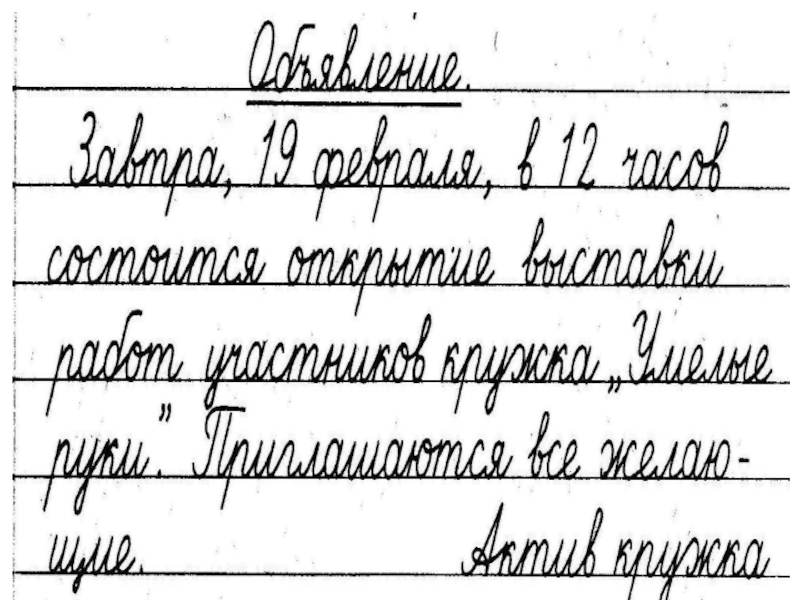 Объявление.
Завтра, 19 февраля, в 12 часов
состоится открытие выставки
работ участников кружка „Умелые
руки.” Приглашаются все желаю-
щие. Актив кружка